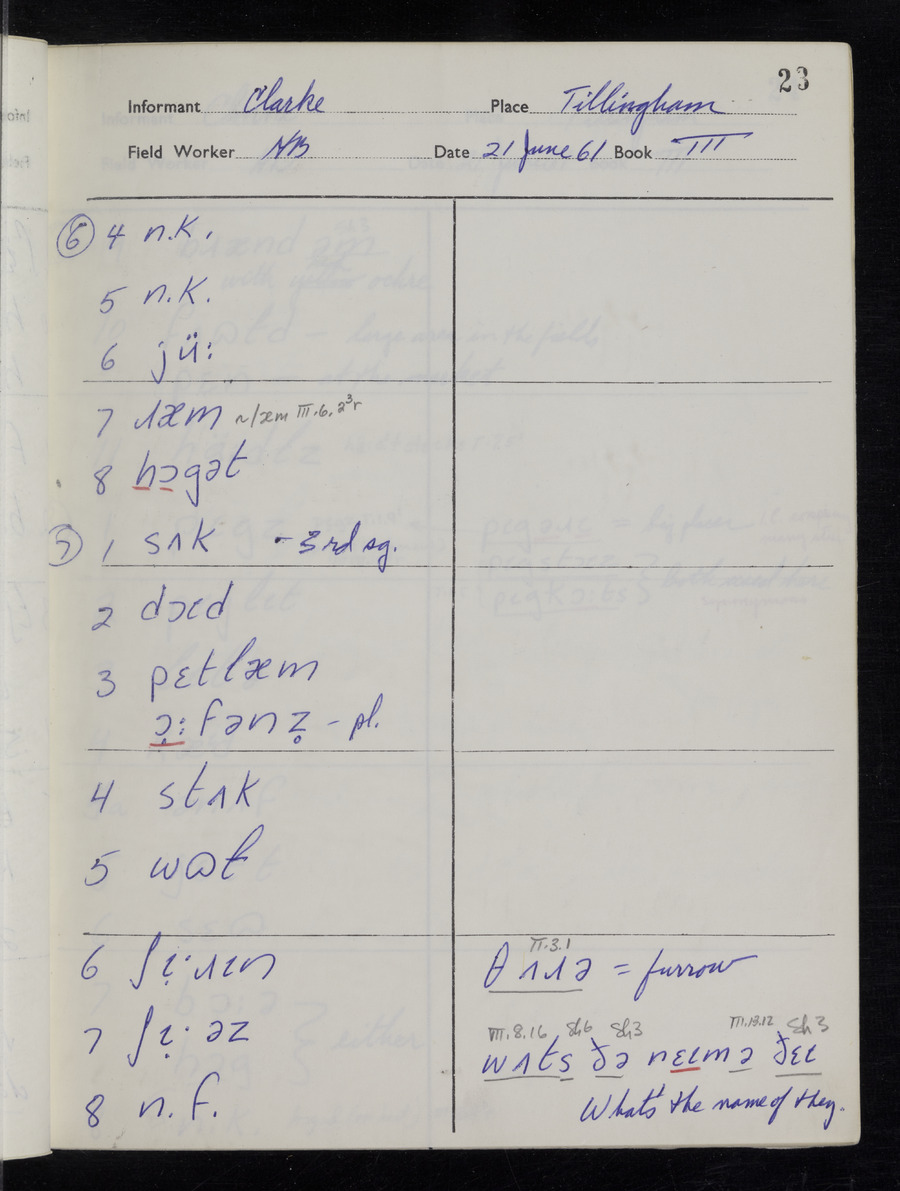 23
Informant Clarke Place Tillingham
Field Worker NB Date 21 June 61 Book III
⑥ 4 n.k.
5 n.k.
6 jü:
7 ɹæm ~/æm III.6.2³r
8 hɔgət
⑦ 1 sʌk - 3rd sg.
2 dɔɩd
3 pɛtlæm
ɔ̣:fənz̥ - pl.
4 stʌk
5 wɒt
6 ʃɩ̣·ɹɩn
7 ʃɩ̣·əz
8 n.f.
II.3.1
θʌɹə = furrow
VII.8.16 Sh6 Sh3 III.13.12 Sh3
wʌts ðə nɛɩm ə ðɛɩ
What's the name of they.